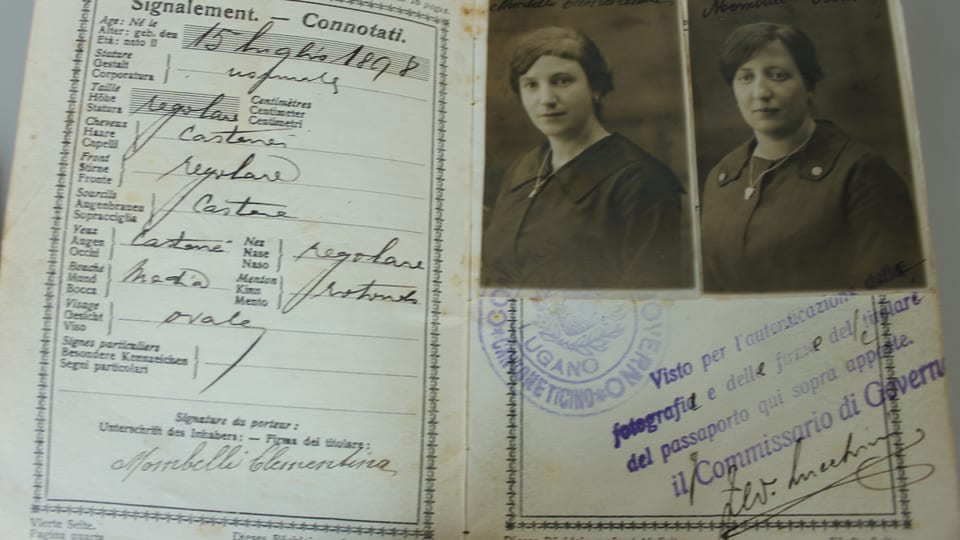 Signalement. — Connotati.
Age: Né le
Alter: geb. den
Età: nato il
15 luglio 1898
Stature
Gestalt
Corporatura
normale
Taille
Höhe
Statura
regolare
Centimètres
Centimeter
Centimetri
Cheveux
Haare
Capelli
Castani
Front
Stirne
Fronte
regolare
Sourcils
Augenbrauen
Sopracciglia
Castane
Yeux
Augen
Occhi
Castani
Nez
Nase
Naso
regolare
Bouche
Mund
Bocca
Media
Menton
Kinn
Mento
rotondo
Visage
Gesicht
Viso
ovale
Signes particuliers
Besondere Kennzeichen
Segni particolari
Signature du porteur:
Unterschrift des Inhabers: — Firma del titolare:
Mombelli Clementina
Vierte Seite.
Pagina quarta
Mombelli Clementina
Mombelli
GOVERNO
CANTONE TICINO
LUGANO
Visto per l'autenticazione della
fotografia e delle firme del titolare
del passaporto qui sopra apposte.
il Commissario di Governo